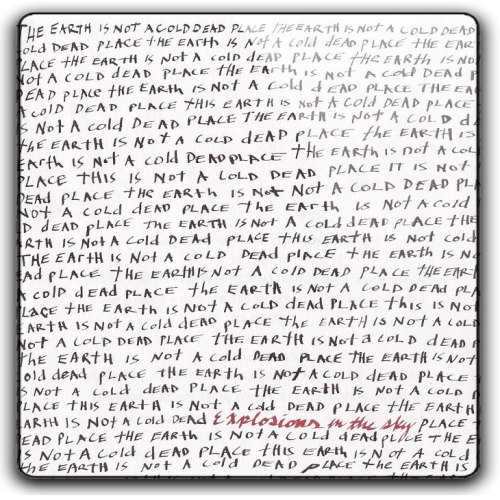 THE EARTH IS NOT A COLD DEAD PLACE THE EARTH IS NOT A COLD DEAD
COLD DEAD PLACE tHE EARTH IS NOT A cold dEAD PLACE tHE EART
PLACE tHE EARTH IS NOT A COLD DEAD PLACE THE EARTH IS NO
NOT A COLD DEAD PLACE tHE EARTH IS NOT A COLD dEAD P
DEAD PLACE tHE EARTH IS NOT A COLD d EAD PLACE THE EA
A COLD DEAD PLACE tHIS EARTH IS NOT A COLD DEAD PLACE
IS NOT A COLD DEAD PLACE THE EARTH IS NOT A COLD D
tHE EARTH IS NOT A COLD dEAD PLACE tHE EARTH IS
EARTH IS NOT A cold DEAD PLACE tHE EARTH IS NOt A COLD
PLACE THIS IS NOT A LOLD DEAD PLACE IT IS NOT
DEAd PLACE tHE EARTH IS NOt NOt A COLD DEAD PL
NOT A COLD dEAD PLACE tHE EARTH IS NOT A cold
D dEAD PLACE THE EARTH IS NOT A COLD dEAD PLACE tHE
ARTH IS NOt A cold DEAd PLACE tHIS EARTH IS NOT cold
THE EARTH IS NOT A COLD DEAD PLACE tHE EARTH IS N
EAD PLACE tHE EARTH IS NOT A COLD DEAD PLACE tHE EART
A cold dEAD PLACE tHE EARTH IS NOT A COLD DEAD PLACE
PLACE tHE EARTH IS NOt A COLD dEAD PLACE tHIS IS NOT
EARTH IS NOt A COLD DEAD PLACE tHE EARTH IS NOT A COLD
NOT A COLD DEAD PLACE tHE EARTH IS NOt a COLD dEAD P
tHE EARTH IS NOT A cold DEAD PLACE tHE EARTH IS NOT
cold dEAD PLACE THE EARTH IS NOT A COLD dEAD PLACE
IS NOT A COLD dEAD PLACE tHE EARTH IS NOT A COLD
PLACE tHIS EARTH IS NOT A cold DEAD PLACE tHE EARTH
EARTH IS NOT A COLD DEAD Explosions in the sky PLACE
EAD PLACE tHE EARTH IS NOT A COLD dEAD PLACE tHE EA
S NOT A Cold DEAD PLACE tHIS EARTH IS NOT A COLD
THE EARTH IS NOT A COLD DEAD PLACE tHE EARTH IS